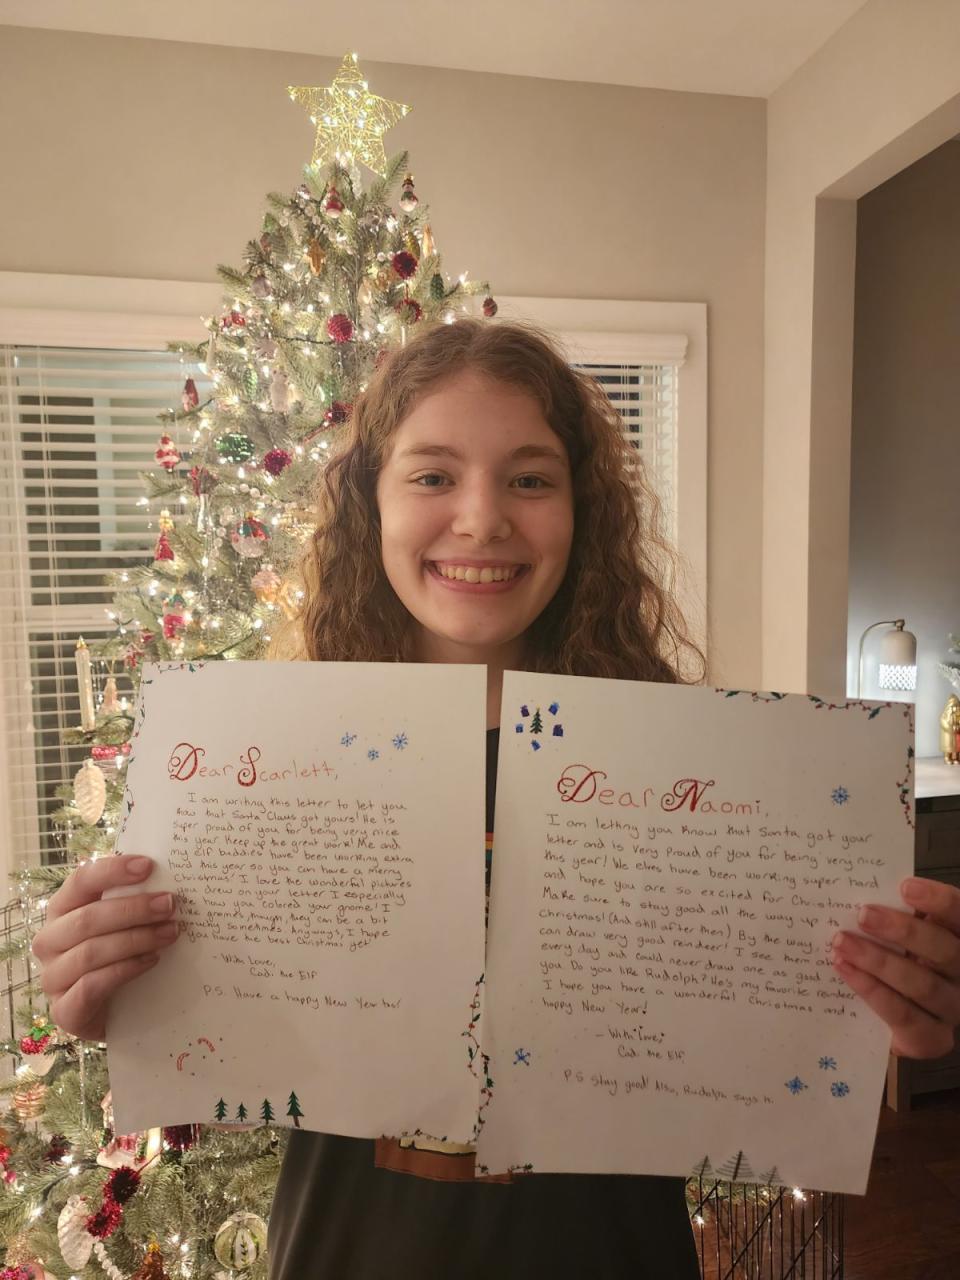 Dear Scarlett,
I am writing this letter to let you
know that Santa Claus got yours! He is
super proud of you for being very nice
this year. Keep up the great work! Me and
my elf buddies have been working extra
hard this year so you can have a merry
Christmas! I love the wonderful pictures
you drew on your letter I especially
how you colored your gnome! I
like gnomes, though, they can be a bit
grouchy sometimes. Anyways, I hope
you have the best Christmas yet
- With Love,
Cadi the Elf
P.S. Have a happy New Year too!
Dear Naomi,
I am letting you know that Santa got your
letter and is very proud of you for being very nice
this year! We elves have been working super hard
and hope you are so excited for Christmas
Make sure to stay good all the way up to
Christmas! (And still after then) By the way,
can draw very good reindeer! I see them
every day and could never draw one as good as
you. Do you like Rudolph? He's my favorite reindeer
I hope you have a wonderful Christmas and a
happy New Year!
- With Love,
Cadi the Elf
P.S Stay good! Also, Rudolph says hi.